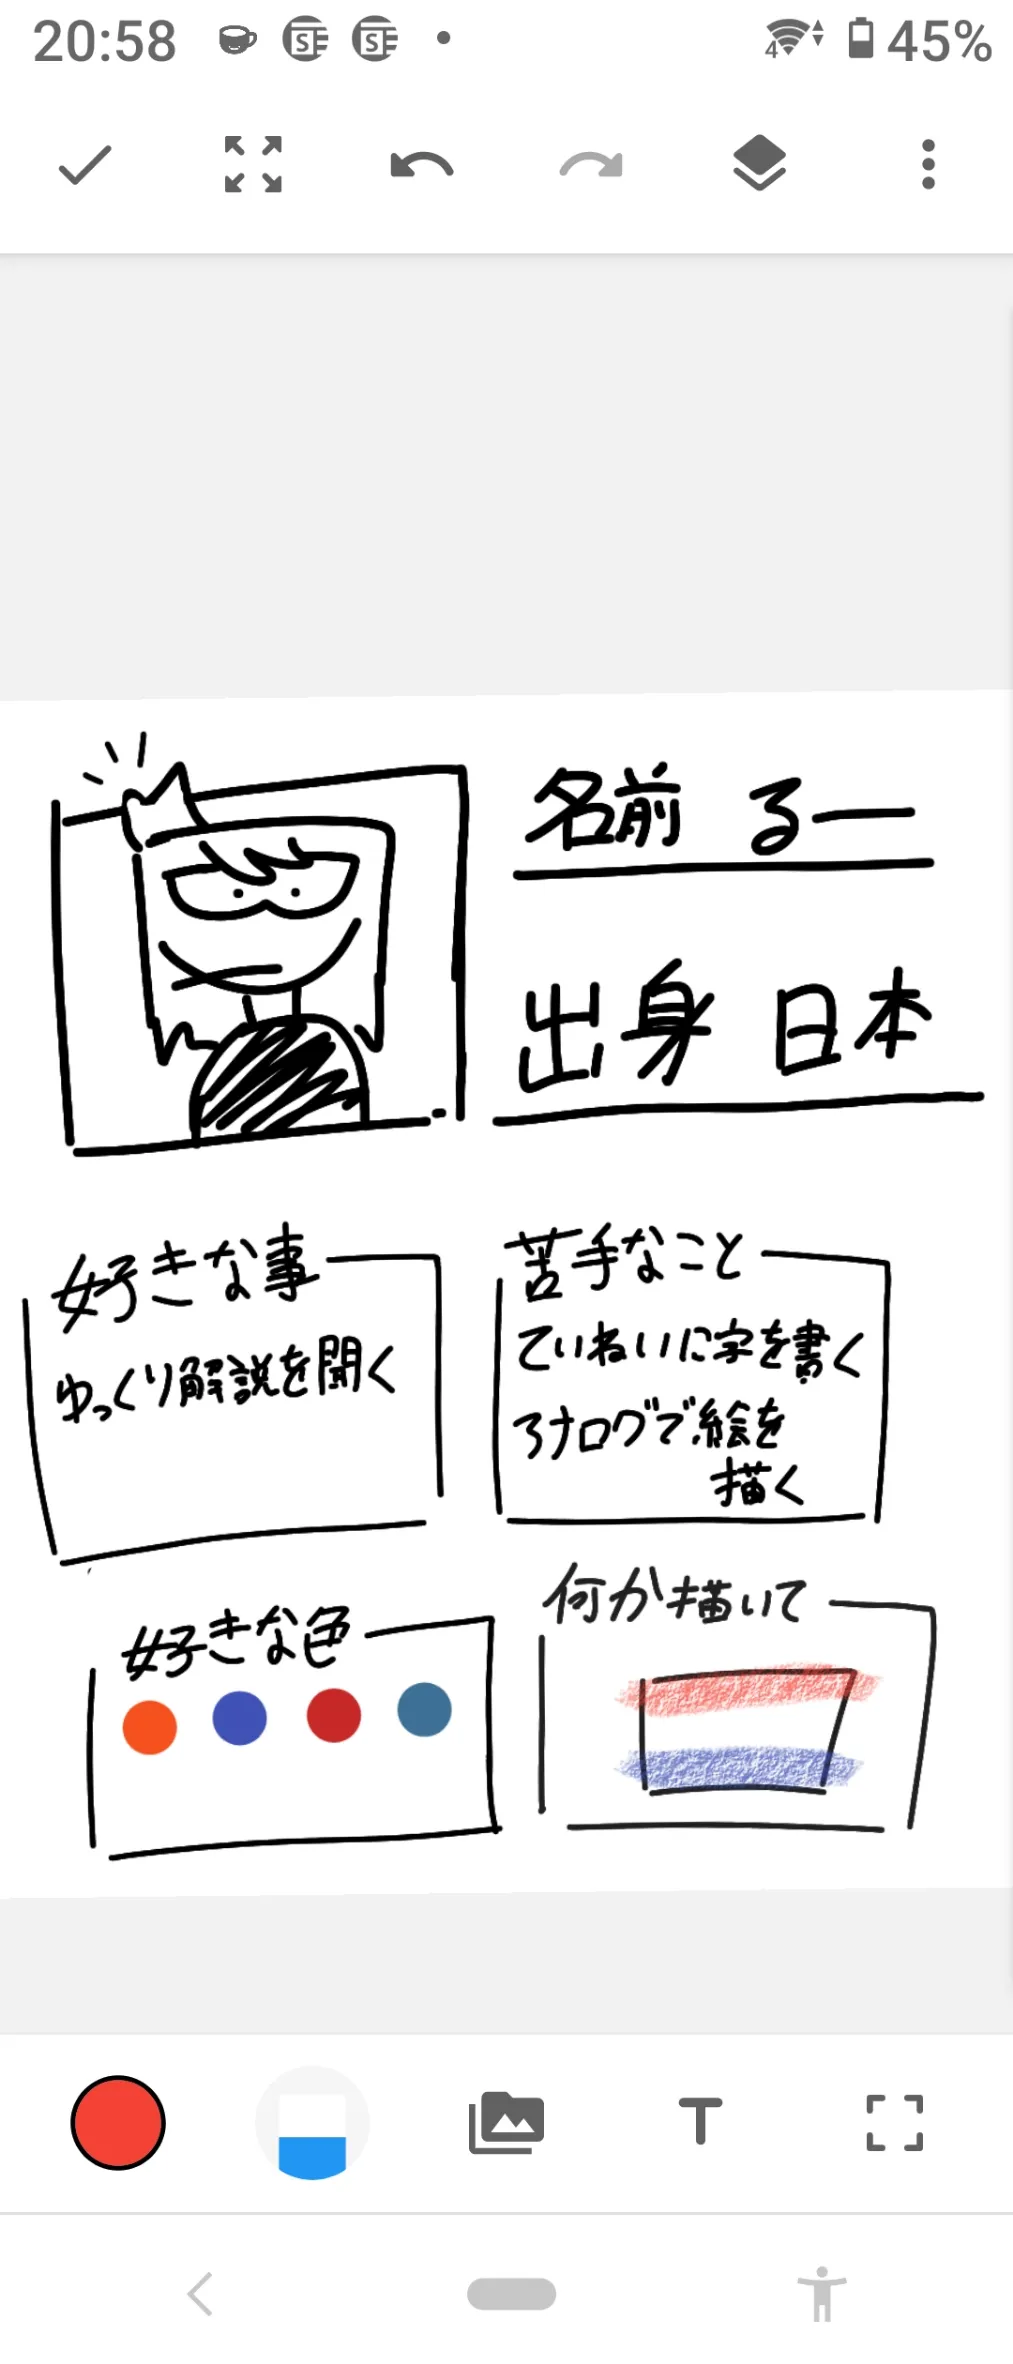 20:58
45%
名前 るー
出身 日本
好きな事
ゆっくり解説を聞く
苦手なこと
ていねいに字を書く
アナログで絵を
描く
好きな色
何か描いて